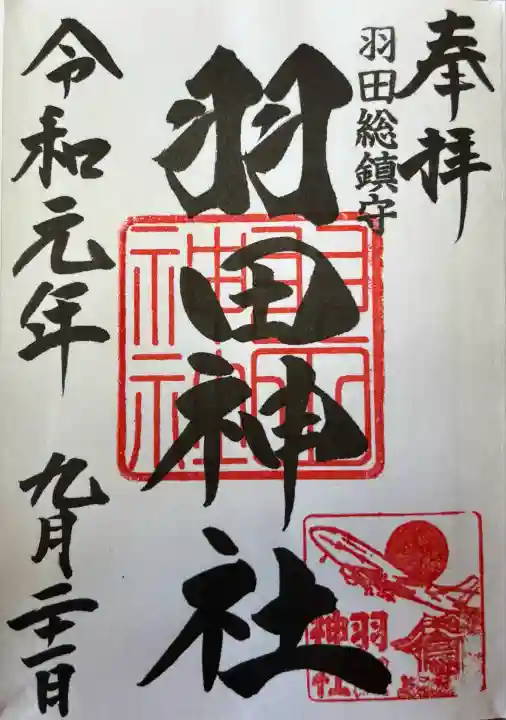 奉拝
羽田総鎮守
羽田神社
令和元年 九月二十一日
羽田神社
羽田
神社